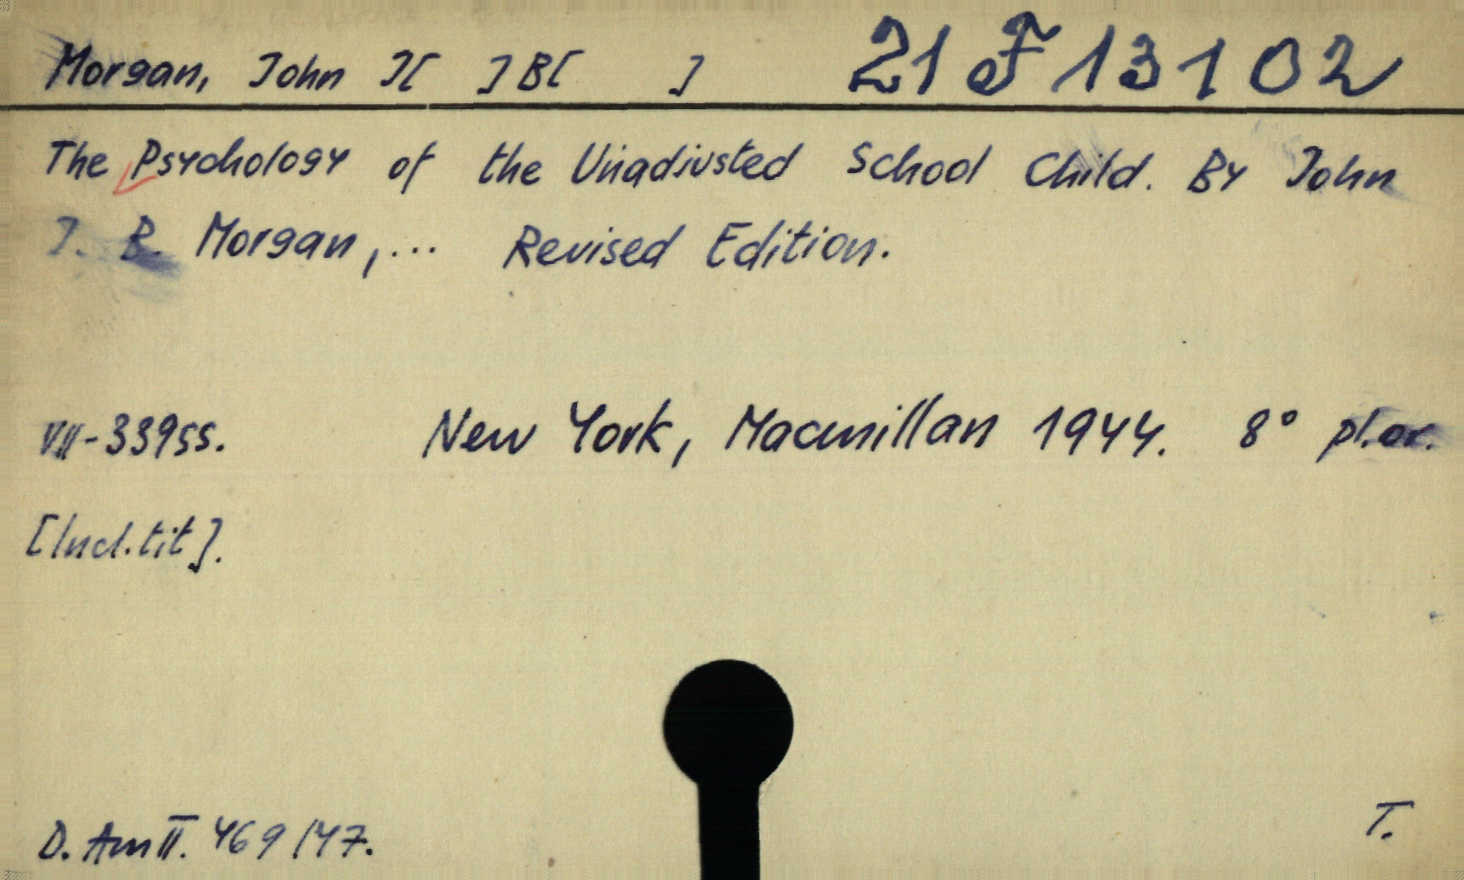 Morgan, John J[ ] B[ ] 21 F 13102
The Psychology of the Unadjusted School Child. By John
J. B. Morgan,... Revised Edition.
VII-339ss. New York, Macmillan 1944. 8° pl.or.
[Incl.tit].
D. Am II. 469/47. T.